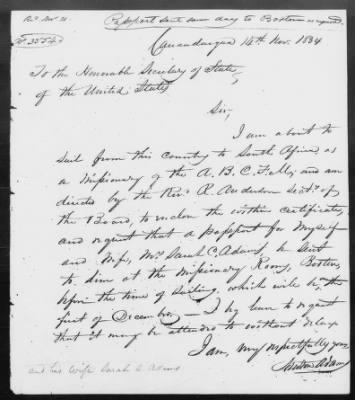 Recd Nov. 21. Passport sent same day to Boston as requested.
No. 3554
Canandaigua 14th Nov. 1834
To the Honorable Secretary of State,
of the United States
Sir,
I am about to
sail from this country to South Africa as
a Missionary of the A. B. C. F. M., and am
directed by the Revd. R. Anderson Secty. of
the Board, to enclose the within certificate,
and request that a passport for myself
and wife, Mrs Sarah C. Adams, be sent
to him at the Missionary Rooms, Boston,
before the time of sailing, which will be, the
first of December, — I beg leave to request
that it may be attended to without delay
I am, very respectfully yours
Newton Adams
and his wife Sarah C. Adams